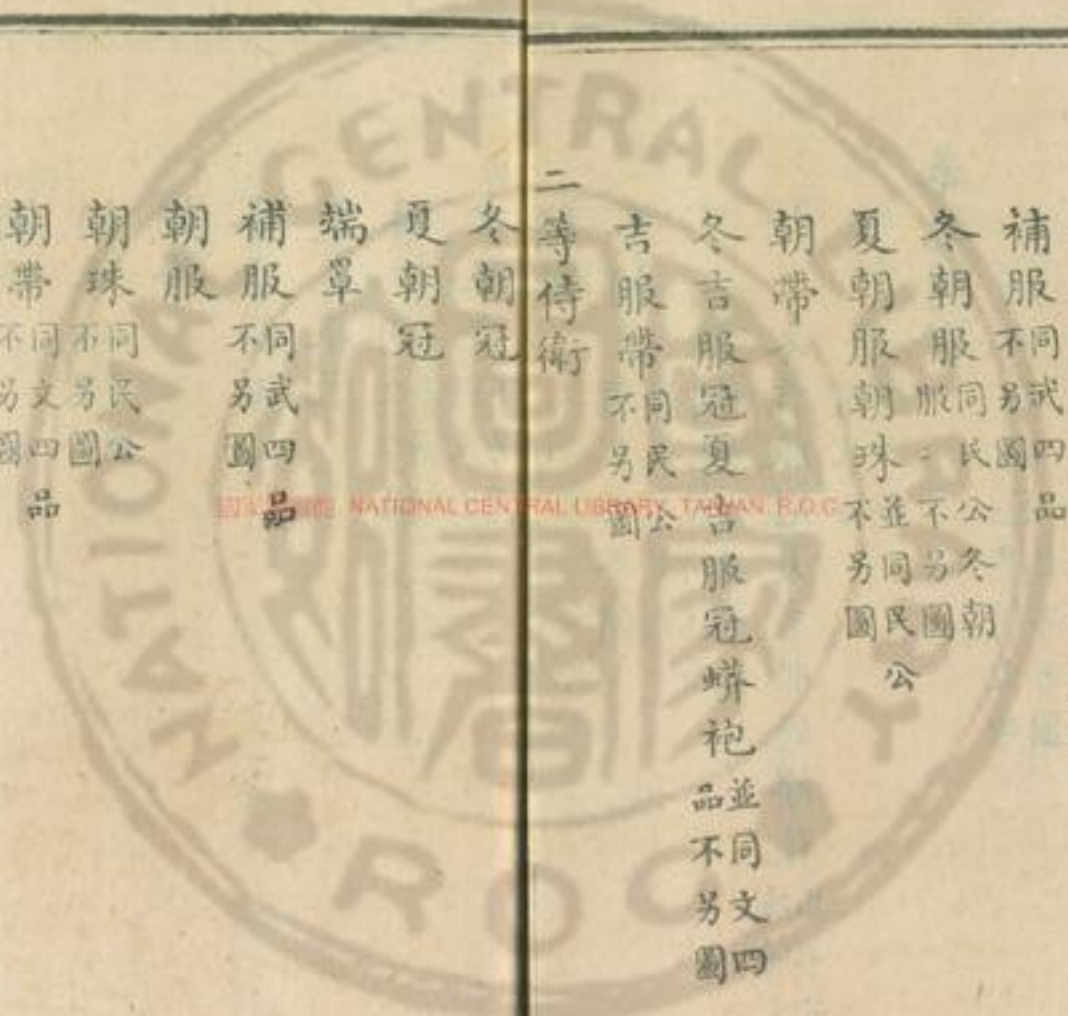 補服同武四品不另圖
冬朝服同民公冬朝服二不另圖
夏朝服朝珠並同民公不另圖
朝帶
冬吉服冠夏吉服冠蟒袍並同文四品不另圖
吉服帶同民公不另圖
二等侍衛
冬朝冠
夏朝冠
端罩
補服同武四品不另圖
朝服
朝珠同民公不另圖
朝帶同文四品不另圖
NATIONAL CENTRAL LIBRARY, TAIWAN R.O.C.
NATIONAL CENTRAL LIBRARY
ROC